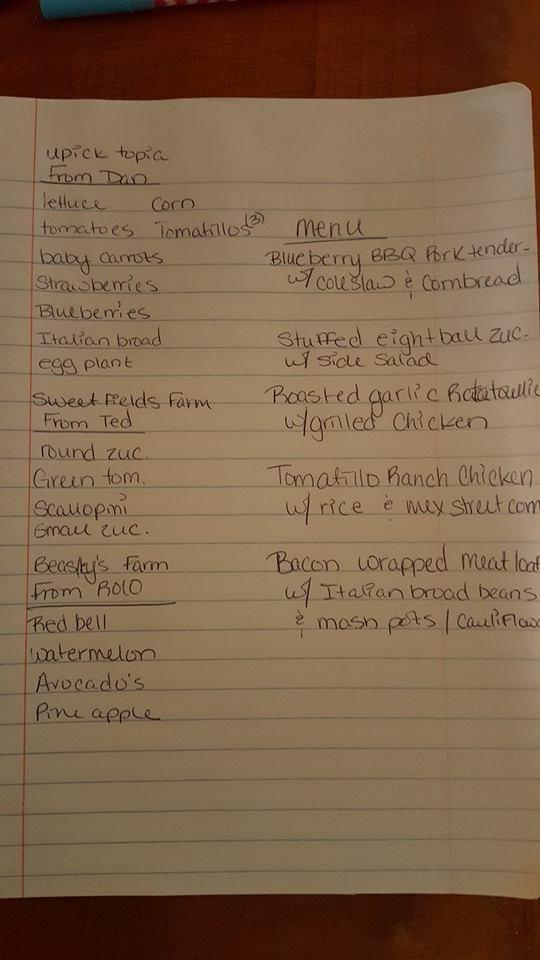 upick topia
From Dan
lettuce corn
tomatoes Tomatillos (3)
baby carrots
Strawberries
Blueberries
Italian broad
egg plant
Sweet Fields Farm
From Ted
round zuc.
Green tom.
Scallopini
small zuc.
Beasley's Farm
From ROLO
Red bell
watermelon
Avocado's
Pine apple
menu
Blueberry BBQ Pork tender-
w/ coleslaw & Cornbread
Stuffed eightball zuc.
w/ side salad
Roasted garlic Ratatouille
w/grilled Chicken
Tomatillo Ranch Chicken
w/ rice & mex street corn
Bacon wrapped meat loaf
w/ Italian broad beans
& mash pots / Cauliflow